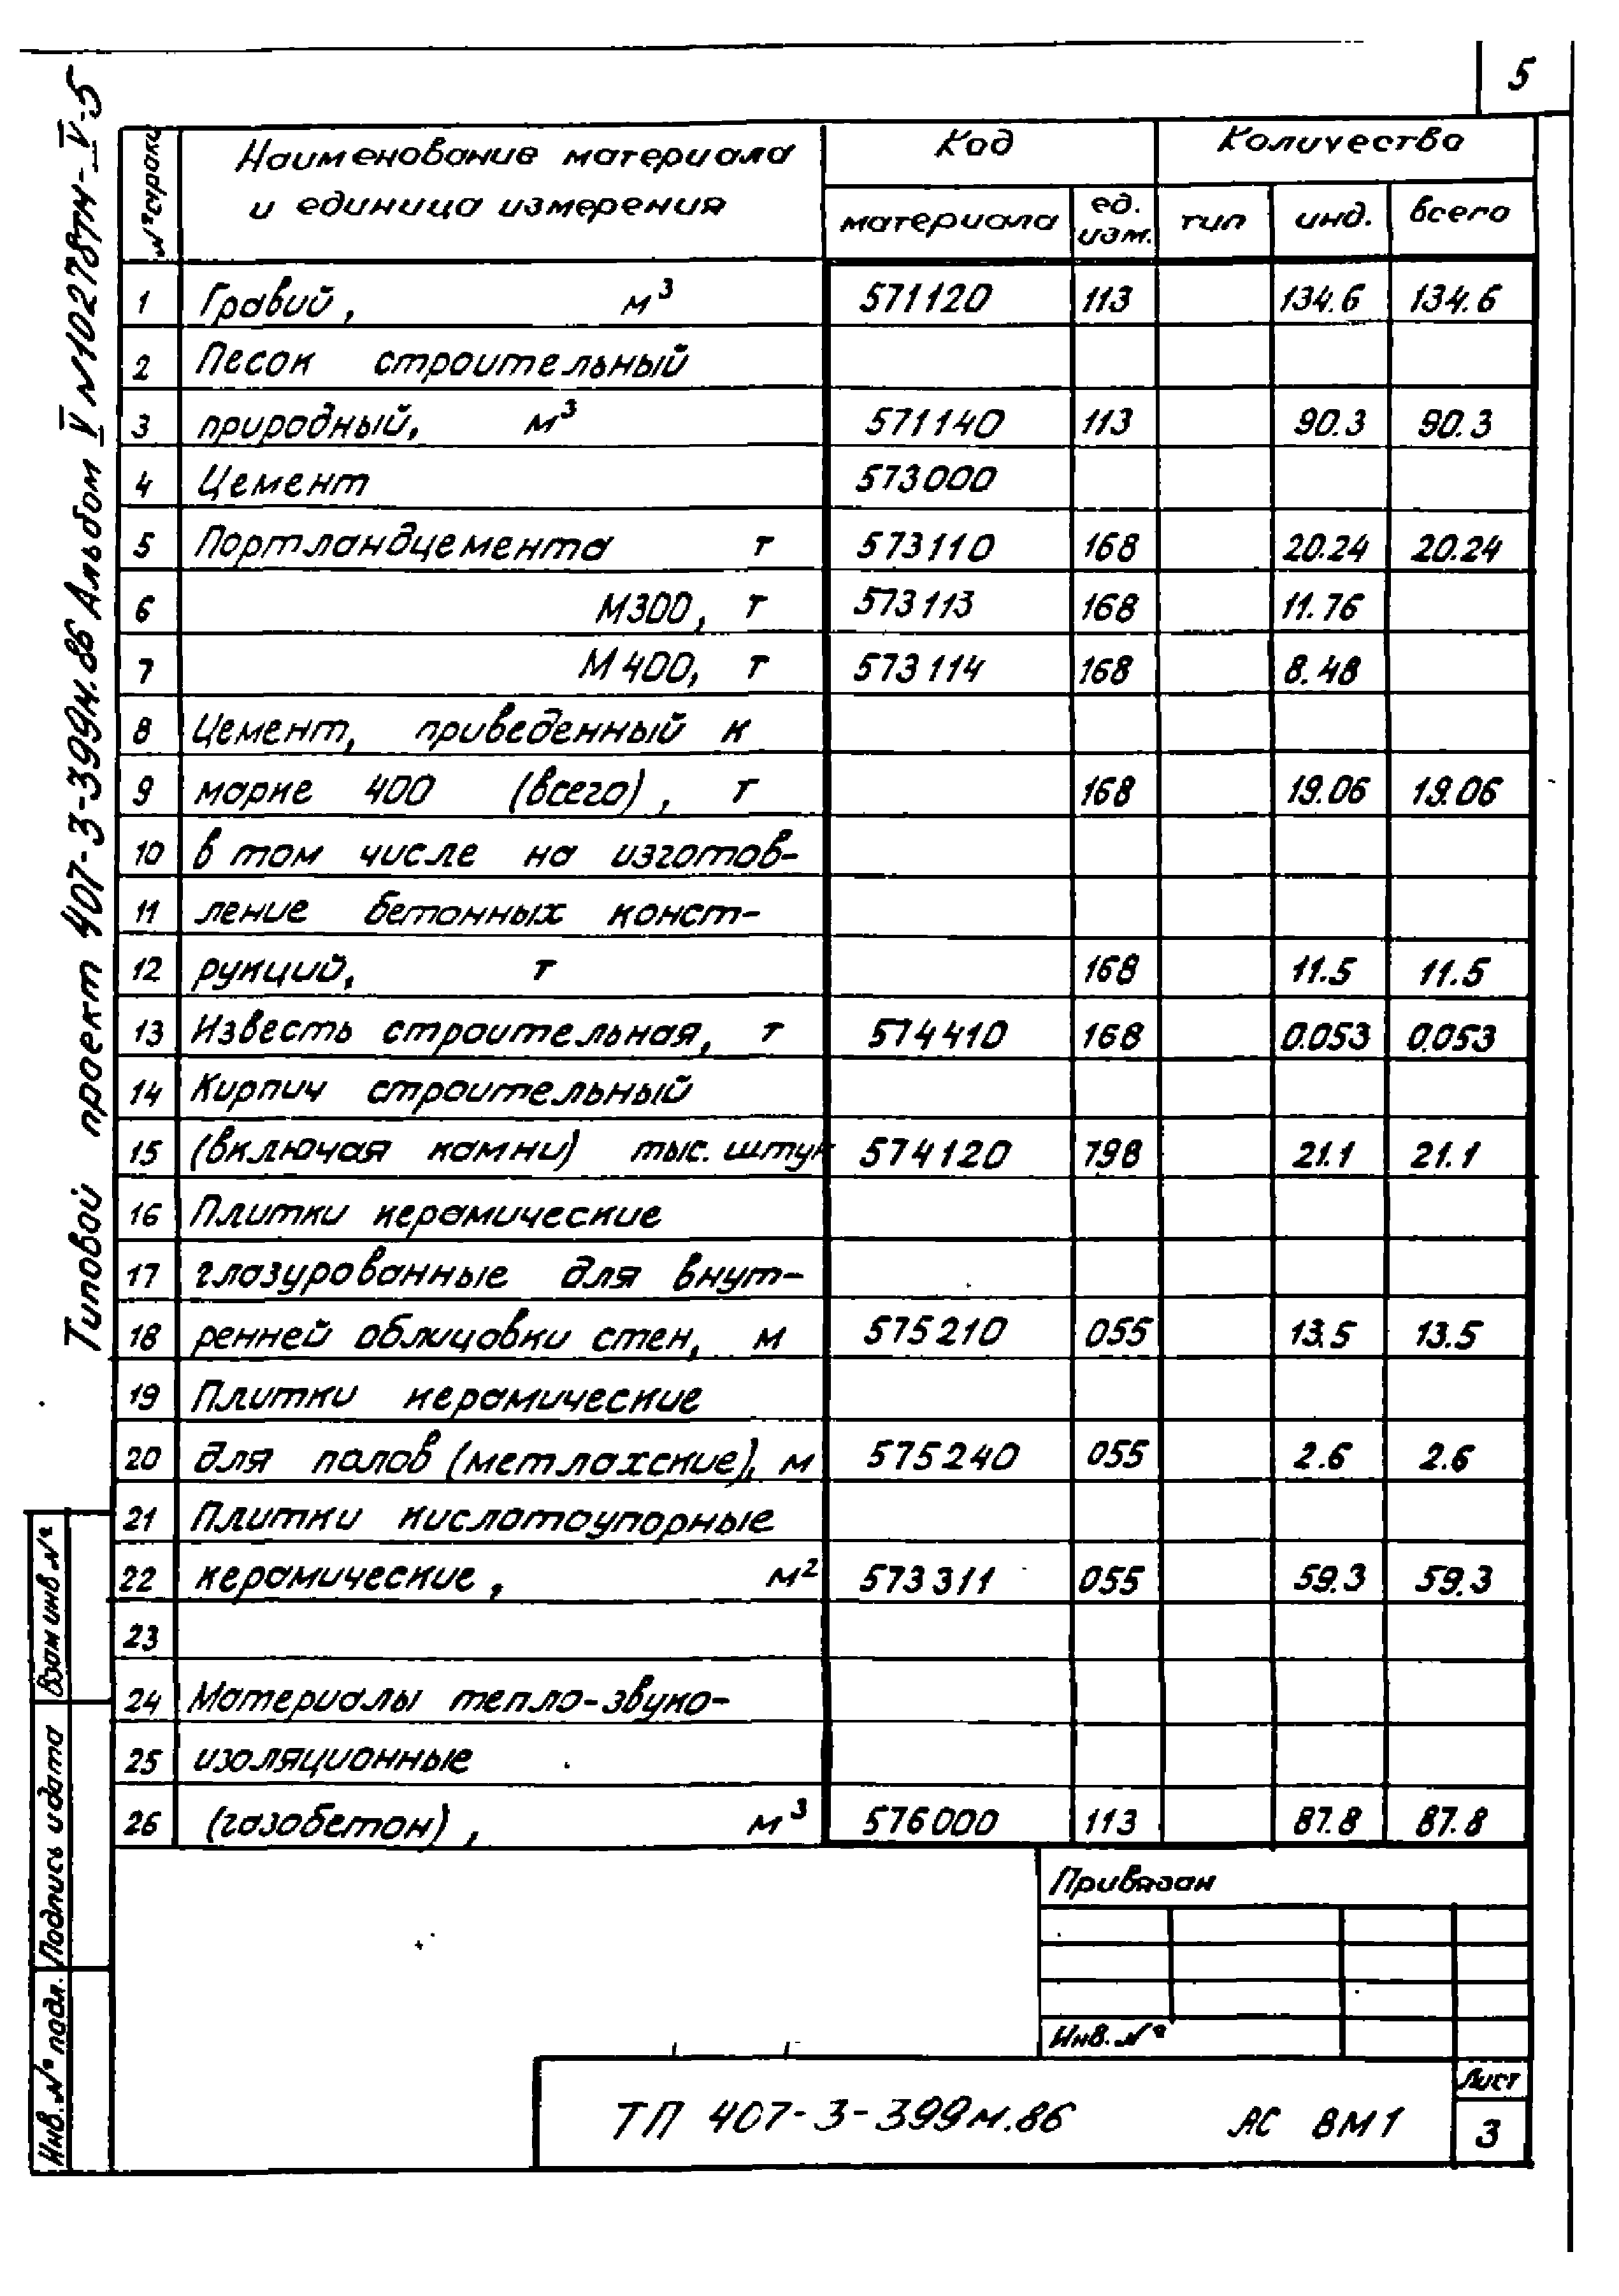 5
Типовой проект 407-3-399м.86 Альбом V №10278тм-V-5
№ строки
Наименование материала
и единица измерения
Код
Количество
материала
ед.
изм.
тип
инд.
всего
1 Гравий, м³ 571120 113 134.6 134.6
2 Песок строительный
3 природный, м³ 571140 113 90.3 90.3
4 Цемент 573000
5 Портландцемента т 573110 168 20.24 20.24
6 М300, т 573113 168 11.76
7 М400, т 573114 168 8.48
8 Цемент, приведенный к
9 марке 400 (всего), т 168 19.06 19.06
10 в том числе на изготов-
11 ление бетонных конст-
12 рукций, т 168 11.5 11.5
13 Известь строительная, т 574410 168 0.053 0.053
14 Кирпич строительный
15 (включая камни) тыс. штук 574120 798 21.1 21.1
16 Плитки керамические
17 глазурованные для внут-
18 ренней облицовки стен, м 575210 055 13.5 13.5
19 Плитки керамические
20 для полов (метлахские), м 575240 055 2.6 2.6
21 Плитки кислотоупорные
22 керамические, м² 573311 055 59.3 59.3
23
24 Материалы тепло-звуко-
25 изоляционные
26 (газобетон), м³ 576000 113 87.8 87.8
Взам инв №
Подпись и дата
Инв. № подл.
Привязан
Инв. №
ТП 407-3-399м.86 АС ВМ1
Лист
3